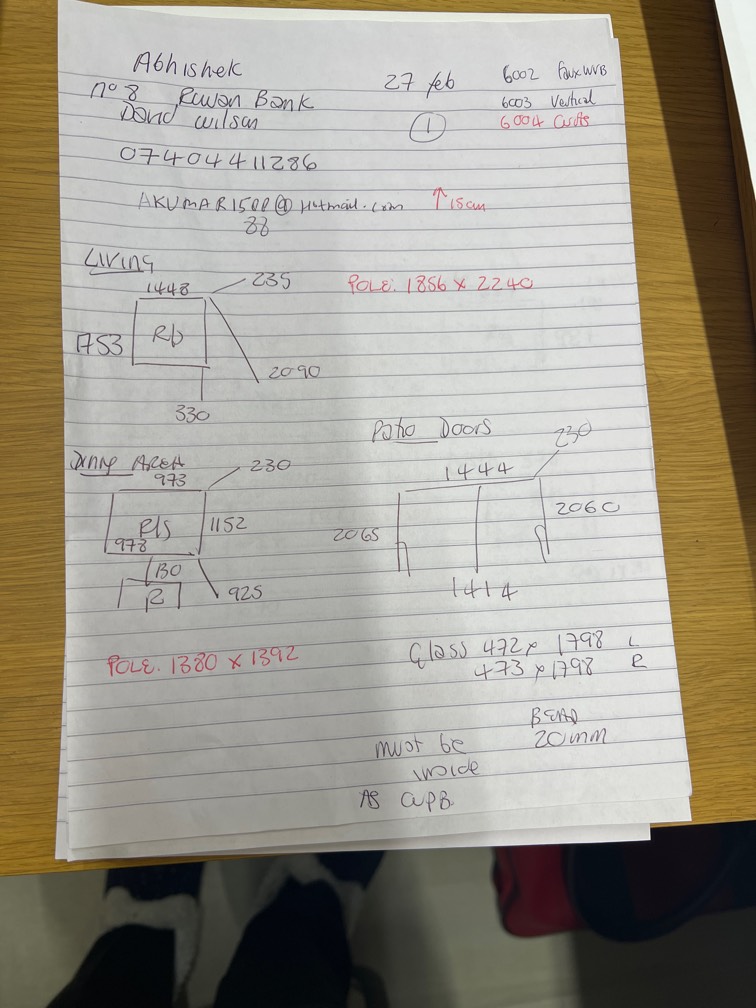 Abhishek
27 feb
6002 Faux WVB
6003 Vertical
6004 Curts
nº 8 Rowan Bank
David Wilson
1
07404411286
AKUMAR1500@Hotmail.com ↑15cm
88
Living
1448
235
POLE. 1856 x 2240
1753
Rb
2090
330
Patio Doors
230
1444
2065
2060
1414
Dining AREA
973
230
Rb
1152
978
130
R
925
POLE. 1380 x 1392
Glass 472 x 1798 L
473 x 1798 R
BEAD
20mm
must be
inside
AS CUPB